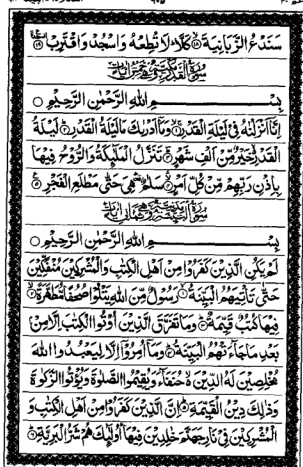 سَنَدْعُ الزَّبَانِيَةَ ۝ كَلَّا ؕ لَا تُطِعْهُ وَاسْجُدْ وَاقْتَرِبْ ۝
بِسْمِ اللّٰهِ الرَّحْمٰنِ الرَّحِيْمِ ۝
اِنَّاۤ اَنْزَلْنٰهُ فِيْ لَيْلَةِ الْقَدْرِ ۝ وَمَاۤ اَدْرٰىكَ مَا لَيْلَةُ الْقَدْرِ ۝ لَيْلَةُ
الْقَدْرِ خَيْرٌ مِّنْ اَلْفِ شَهْرٍ ۝ تَنَزَّلُ الْمَلٰٓئِكَةُ وَالرُّوْحُ فِيْهَا
بِاِذْنِ رَبِّهِمْ مِّنْ كُلِّ اَمْرٍ ۝ سَلٰمٌ هِيَ حَتّٰى مَطْلَعِ الْفَجْرِ ۝
بِسْمِ اللّٰهِ الرَّحْمٰنِ الرَّحِيْمِ ۝
لَمْ يَكُنِ الَّذِيْنَ كَفَرُوْا مِنْ اَهْلِ الْكِتٰبِ وَالْمُشْرِكِيْنَ مُنْفَكِّيْنَ
حَتّٰى تَاْتِيَهُمُ الْبَيِّنَةُ ۝ رَسُوْلٌ مِّنَ اللّٰهِ يَتْلُوْا صُحُفًا مُّطَهَّرَةً ۝
فِيْهَا كُتُبٌ قَيِّمَةٌ ۝ وَمَا تَفَرَّقَ الَّذِيْنَ اُوْتُوا الْكِتٰبَ اِلَّا مِنْۢ
بَعْدِ مَا جَآءَتْهُمُ الْبَيِّنَةُ ۝ وَمَاۤ اُمِرُوْۤا اِلَّا لِيَعْبُدُوا اللّٰهَ
مُخْلِصِيْنَ لَهُ الدِّيْنَ ۙ حُنَفَآءَ وَيُقِيْمُوا الصَّلٰوةَ وَيُؤْتُوا الزَّكٰوةَ
وَذٰلِكَ دِيْنُ الْقَيِّمَةِ ۝ اِنَّ الَّذِيْنَ كَفَرُوْا مِنْ اَهْلِ الْكِتٰبِ وَ
الْمُشْرِكِيْنَ فِيْ نَارِ جَهَنَّمَ خٰلِدِيْنَ فِيْهَا ؕ اُولٰٓئِكَ هُمْ شَرُّ الْبَرِيَّةِ ۝